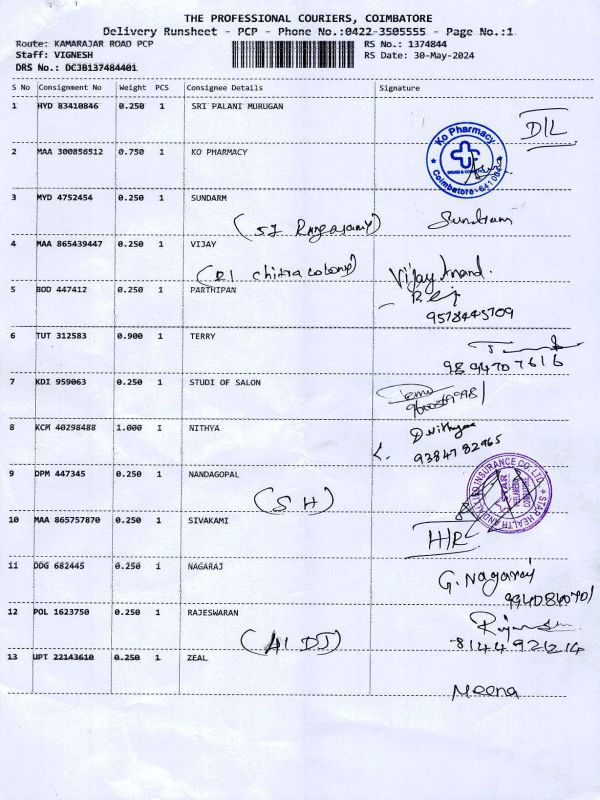 THE PROFESSIONAL COURIERS, COIMBATORE
Delivery Runsheet - PCP - Phone No.:0422-3505555 - Page No.:1
Route: KAMARAJAR ROAD PCP RS No.: 1374844
Staff: VIGNESH RS Date: 30-May-2024
DRS No.: DCJB137484401
S No Consignment No Weight PCS Consignee Details Signature
1 HYD 83410846 0.250 1 SRI PALANI MURUGAN
D/L
2 MAA 300856512 0.750 1 KO PHARMACY
Ko Pharmacy
Coimbatore
3 MYD 4752454 0.250 1 SUNDARM
Sundram
4 MAA 865439447 0.250 1 VIJAY
Vijay Anand.
5 BOD 447412 0.250 1 PARTHIPAN
6 TUT 312583 0.900 1 TERRY
9894707616
7 KDI 959063 0.250 1 STUDI OF SALON
8 KCM 40298488 1.000 1 NITHYA
9384782965
9 DPM 447345 0.250 1 NANDAGOPAL
(S H)
STAR HEALTH AND ALLIED INSURANCE CO. LTD.
10 MAA 865757870 0.250 1 SIVAKAMI
H/R
11 DDG 682445 0.250 1 NAGARAJ
G. Nagaraj
12 POL 1623750 0.250 1 RAJESWARAN
8144921214
13 UPT 22143610 0.250 1 ZEAL
Meena